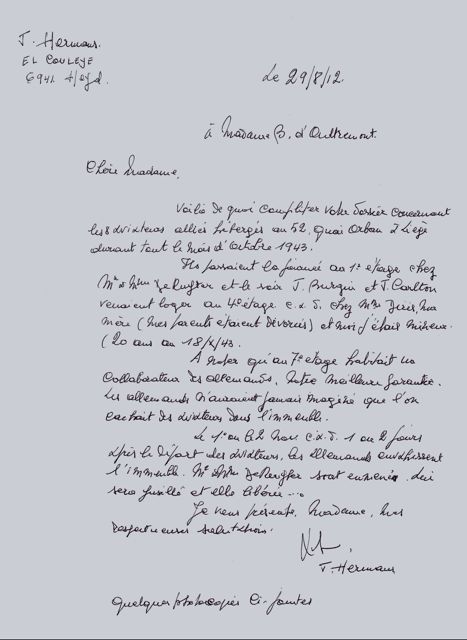 J. Hermans.
EL COULEYE
6941 Heyd.
Le 29/8/12.
à Madame B. d'Oultremont.
Chère Madame,
Voilà de quoi compléter votre dossier concernant
les 8 aviateurs alliés hébergés au 52, quai Orban à Liège
durant tout le mois d'Octobre 1943.
Ils passaient la journée au 1° étage chez
Mr & Mme et le soir J. et J. Carlton
venaient loger au 4° étage c.à.d. chez Mme ma
mère (mes parents étaient divorcés) et moi j'étais mineur.
(20 ans au 18/X/43.
A noter qu'au 7° étage habitait un
collaborateur des allemands. Notre meilleure garantie.
Les allemands n'auraient jamais imaginé que l'on
cachait des aviateurs dans l'immeuble.
Le 1° ou le 2 Nov. c.à.d. 1 ou 2 jours
après le départ des aviateurs, les allemands envahissent
l'immeuble. Mr & Mme sont emmenés, lui
sera fusillé et elle libérée...
Je vous présente, Madame, mes
respectueuses salutations.
J. Hermans
Quelques photocopies ci-jointes